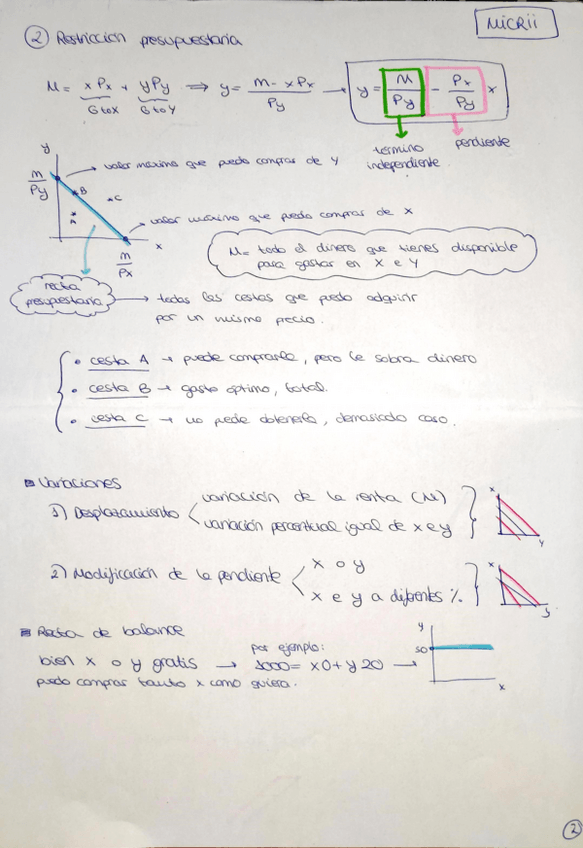 MICRII
② Restricción presupuestaria
M = xPx + yPy ⟹ y = m - xPx / Py → y = M / Py - Px / Py x
GtoX GtoY
termino independiente
pendiente
y
M / Py
valor máximo que puedo comprar de Y
B
C
A
valor máximo que puedo comprar de X
x
m / Px
M = todo el dinero que tienes disponible
para gastar en X e Y
recta
presupuestaria → todas las cestas que puedo adquirir
por un mismo precio.
• cesta A → puede comprarla, pero le sobra dinero
• cesta B → gasto óptimo, total.
• cesta C → no puede obtenerla, demasiado caro.
Variaciones
1) Desplazamiento
variación de la renta (M)
variación porcentual igual de x e y
x
y
2) Modificación de la pendiente
x o y
x e y a diferentes %
x
y
Recta de balance
bien x o y gratis → por ejemplo:
1000 = x0 + y20 →
puedo comprar tanto x como quiera.
y
50
x
2